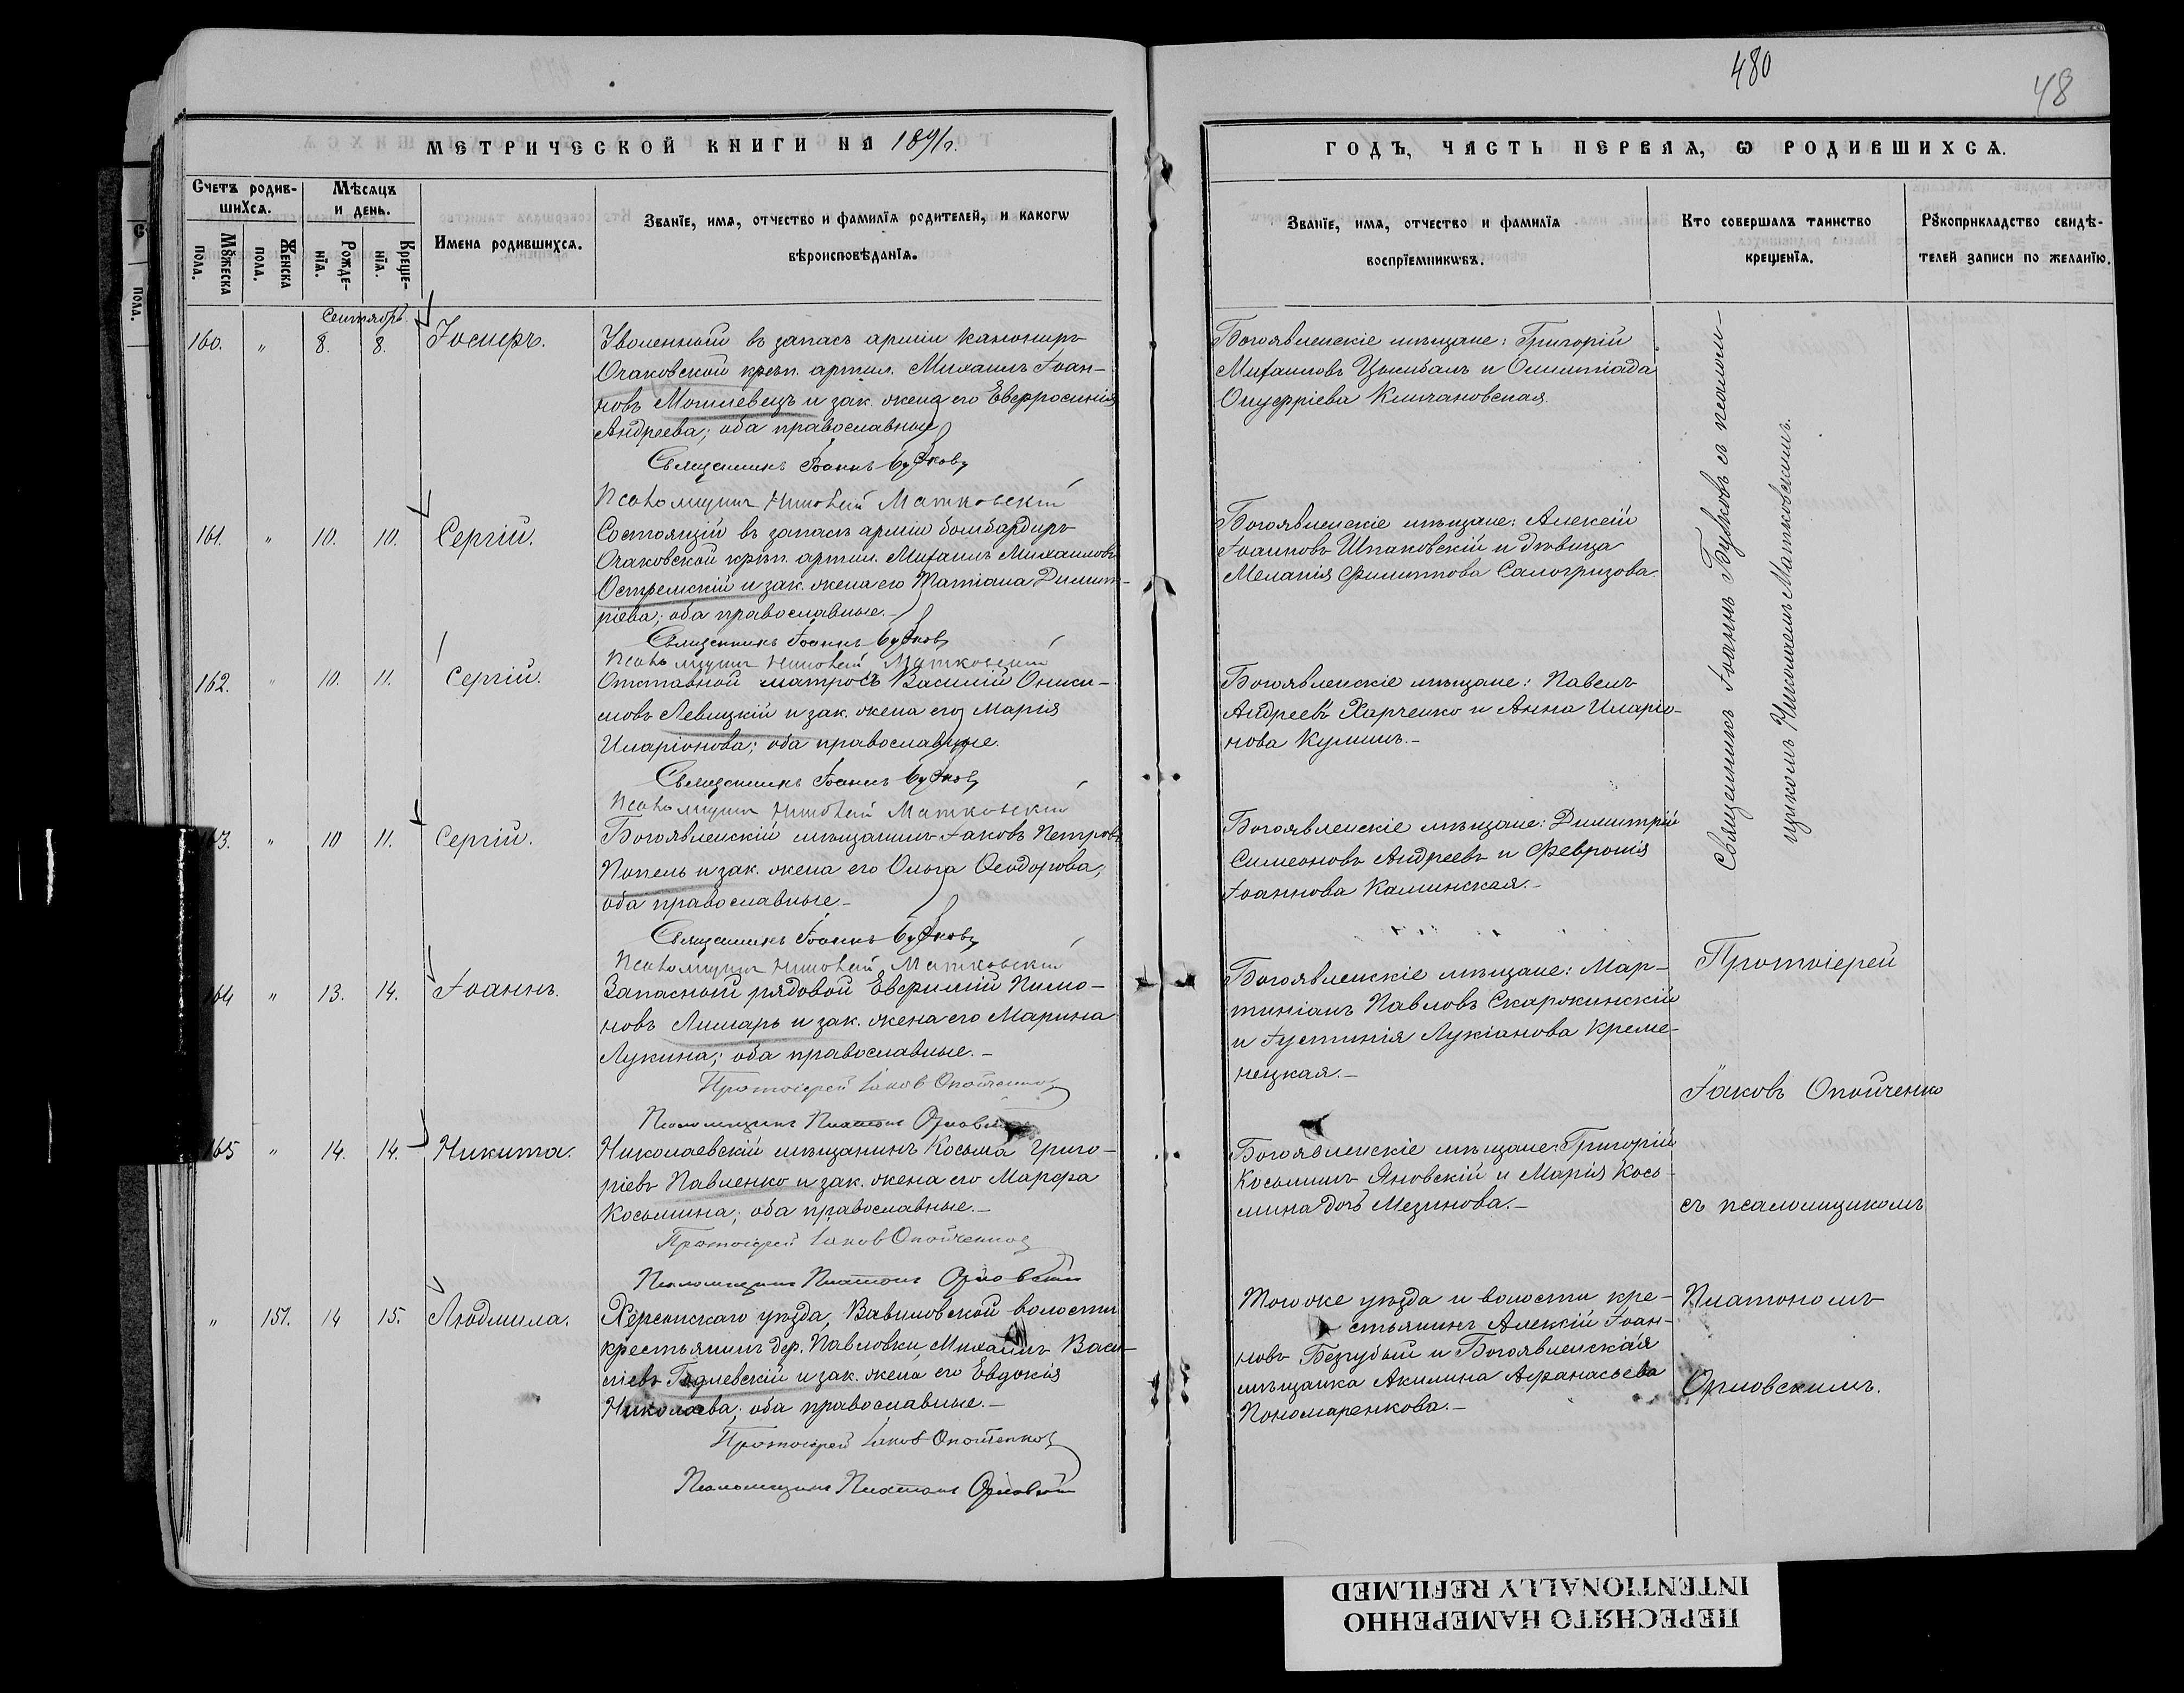 480
48
МЕТРИЧЕСКОЙ КНИГИ НА 1891 г.
ГОДЪ, ЧАСТЬ ПЕРВАЯ, Ѡ РОДИВШИХСѦ.
Счетъ родив-
шихсѧ.
Мѣсѧцъ
и день.
Мꙋжеска
пола.
Женска
пола.
Рожде-
нїѧ.
Креще-
нїѧ.
Имена родившихсѧ.
Званїе, имѧ, отчество и фамилїѧ родителей, и какогѡ
вѣроисповѣданїѧ.
Званїе, имѧ, отчество и фамилїѧ
воспрїемникѡвъ.
Кто совершалъ таинство
крещенїѧ.
Рꙋкоприкладство свидѣ-
телей записи по желанїю.
Сентябрь
160. " 8. 8. Іосифъ.
Уволенный въ запасъ арміи канониръ
Очаковской крѣп. артил. Михаилъ Іоан-
новъ Могилевецъ и зак. жена его Евфросинія
Андреева; оба православные
Священникъ Іоаннъ Будковъ
Псаломщикъ Николай Матковскій
Богоявленскіе мѣщане: Григорій
Михаиловъ Цымбалъ и Олимпіада
Онуфріева Климановская.
161. " 10. 10. Сергій.
Состоящій въ запасѣ арміи бомбардиръ
Очаковской крѣп. артил. Михаилъ Михаиловъ
Остремскій и зак. жена его Татіана Димит-
ріева; оба православные.-
Священникъ Іоаннъ Будковъ
Псаломщикъ Николай Матковскій
Богоявленскіе мѣщане: Алексій
Іоанновъ Шпаковскій и дѣвица
Меланія Филиппова Самогризова.
162. " 10. 11. Сергій.
Отставной матросъ Василій Ониси-
мовъ Левицкій и зак. жена его Марія
Иларіонова; оба православные.
Священникъ Іоаннъ Будковъ
Псаломщикъ Николай Матковскій
Богоявленскіе мѣщане: Павелъ
Андреевъ Харченко и Анна Иларіо-
нова Кулишъ.-
Священникъ Іоаннъ Будковъ съ псалом-
щикомъ Николаемъ Матковскимъ.
3. " 10 11. Сергій.
Богоявленскій мѣщанинъ Іаковъ Петровъ
Попель и зак. жена его Ольга Ѳеодорова;
оба православные.-
Священникъ Іоаннъ Будковъ
Псаломщикъ Николай Матковскій
Богоявленскіе мѣщане: Димитрій
Симеоновъ Андреевъ и Февронія
Іоаннова Каминская.-
164 " 13. 14. Іоаннъ.
Запасный рядовой Евфимій Пимо-
новъ Лимарь и зак. жена его Марина
Лукина; оба православные.-
Протоіерей Іаков Опойченко
Псаломщикъ Платонъ Орловскій
Богоявленскіе мѣщане: Мар-
тиніанъ Павловъ Скаржинскій
и Іустинія Лукіанова Креме-
нецкая.-
Протоіерей
Іаковъ Опойченко
165 " 14. 14. Никита.
Николаевскій мѣщанинъ Косьма Григо-
ріевъ Павленко и зак. жена его Марфа
Косьмина; оба православные.-
Протоіерей Іаков Опойченко
Псаломщикъ Платонъ Орловскій
Богоявленскіе мѣщане: Григорій
Косьминъ Яновскій и Марія Кось-
мина дочь Мезинова.-
съ псаломщикомъ
" 151. 14 15. Людмила.
Херсонскаго уѣзда, Вавиловской волости
крестьянинъ дер. Павловки Михаилъ Васи-
ліевъ Годлевскій и зак. жена его Евдокія
Николаева; оба православные.-
Протоіерей Іаков Опойченко
Псаломщикъ Платонъ Орловскій
Того же уѣзда и волости кре-
стьянинъ Алексій Іоан-
новъ Беззубый и Богоявленская
мѣщанка Акилина Афанасьева
Пономаренкова.-
Платономъ
Орловскимъ.
ПЕРЕСНЯТО НАМЕРЕННО
INTENTIONALLY REFILMED